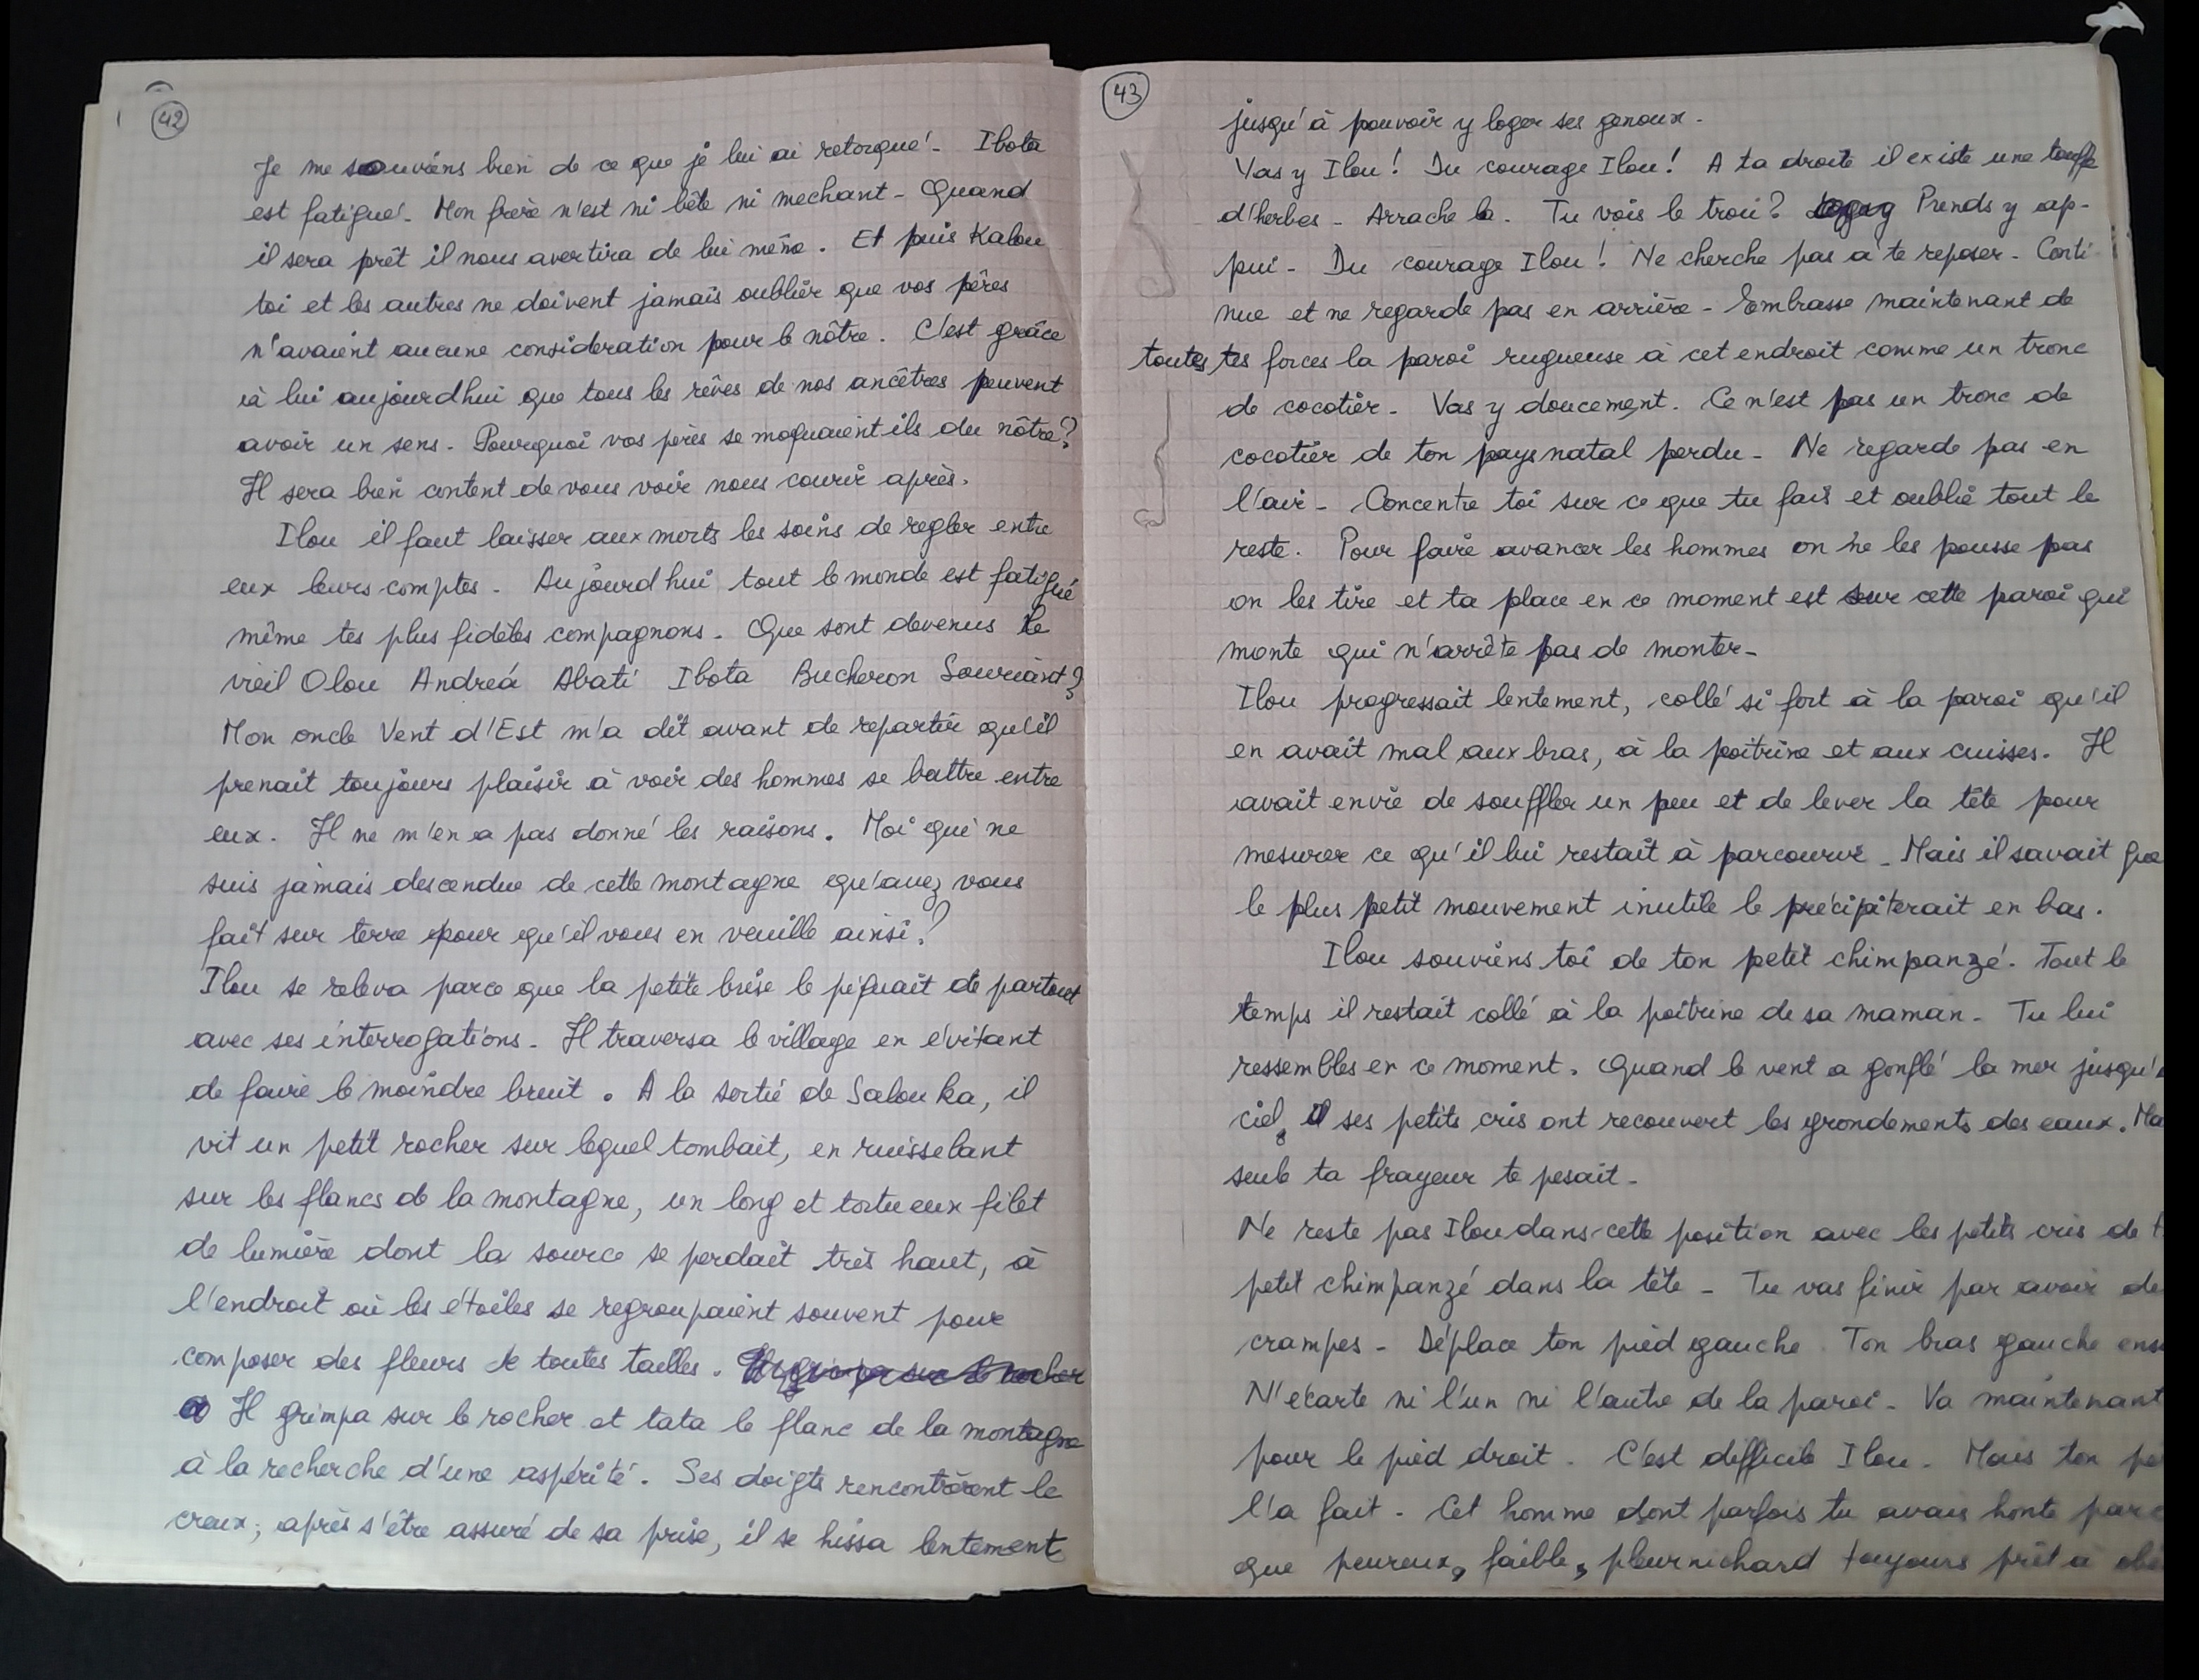 42
Je me souviens bien de ce que je lui ai retorqué. Ibota
est fatigué. Mon frère n'est ni bête ni mechant. Quand
il sera prêt il nous avertira de lui même. Et puis Kalou
toi et les autres ne doivent jamais oublier que vos pères
n'avaient aucune consideration pour le nôtre. C'est grâce
à lui aujourdhui que tous les rêves de nos ancêtres peuvent
avoir un sens. Pourquoi vos pères se moquaient ils du nôtre?
Il sera bien content de vous voir nous courir après.
Ilou il faut laisser aux morts les soins de regler entre
eux leurs comptes. Aujourd hui tout le monde est fatigué
même tes plus fidèles compagnons. Que sont devenus le
vieil Olou Andréa Abati Ibota Bucheron Souriant?
Mon oncle Vent d'Est m'a dit avant de repartir qu'il
prenait toujours plaisir à voir des hommes se battre entre
eux. Il ne m'en a pas donné les raisons. Moi qui ne
suis jamais descendue de cette montagne qu'avez vous
fait sur terre pour qu'il vous en veuille ainsi?
Ilou se releva parce que la petite brise le piquait de partout
avec ses interrogations. Il traversa le village en évitant
de faire le moindre bruit. A la sortie de Salouka, il
vit un petit rocher sur lequel tombait, en ruisselant
sur les flancs de la montagne, un long et tortueux filet
de lumière dont la source se perdait très haut, à
l'endroit où les étoiles se regroupaient souvent pour
composer des fleurs de toutes tailles. Il grimpa sur le rocher
Il grimpa sur le rocher et tata le flanc de la montagne
à la recherche d'une aspérité. Ses doigts rencontrèrent le
creux; après s'être assuré de sa prise, il se hissa lentement
43
jusqu'à pouvoir y loger ses genoux.
Vas y Ilou! Du courage Ilou! A ta droite il existe une touffe
d'herbes. Arrache la. Tu vois le trou? Prends y ap-
pui. Du courage Ilou! Ne cherche pas à te reposer. Conti-
nue et ne regarde pas en arrière. Embrasse maintenant de
toutes tes forces la paroi rugueuse à cet endroit comme un tronc
de cocotier. Vas y doucement. Ce n'est pas un tronc de
cocotier de ton pays natal perdu. Ne regarde pas en
l'air. Concentre toi sur ce que tu fais et oublie tout le
reste. Pour faire avancer les hommes on ne les pousse pas
on les tire et ta place en ce moment est sur cette paroi qui
monte qui n'arrête pas de monter.
Ilou progressait lentement, collé si fort à la paroi qu'il
en avait mal aux bras, à la poitrine et aux cuisses. Il
avait envie de souffler un peu et de lever la tête pour
mesurer ce qu'il lui restait à parcourir. Mais il savait que
le plus petit mouvement inutile le précipiterait en bas.
Ilou souviens toi de ton petit chimpanzé. Tout le
temps il restait collé à la poitrine de sa maman. Tu lui
ressembles en ce moment. Quand le vent a gonflé la mer jusqu'
ciel, ses petits cris ont recouvert les grondements des eaux. Ma
seule ta frayeur te pesait.
Ne reste pas Ilou dans cette position avec les petits cris de t
petit chimpanzé dans la tête. Tu vas finir par avoir de
crampes. Déplace ton pied gauche. Ton bras gauche ens
N'écarte ni l'un ni l'autre de la paroi. Va maintenant
pour le pied droit. C'est difficile Ilou. Mais ton pè
l'a fait. Cet homme dont parfois tu avais honte parc
que peureux, faible, pleurnichard toujours prêt à obé